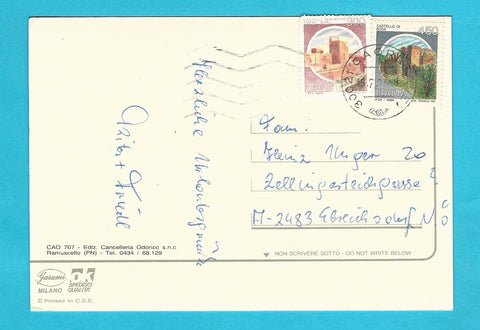 Herzliche Urlaubsgrüße
Fam.
Heinz Unger
A-2483 Ebreichsdorf NÖ
CAO 767 - Ediz. Cancelleria Odorico s.n.c
Ramuscello (PN) - Tel. 0434 / 68.129
▼ NON SCRIVERE SOTTO - DO NOT WRITE BELOW
Garami
MILANO
OK
SPEDISCI
QUALITA'
© Printed in C.E.E.
CASTELLO DI
450
ITALIA
30021 CAORLE